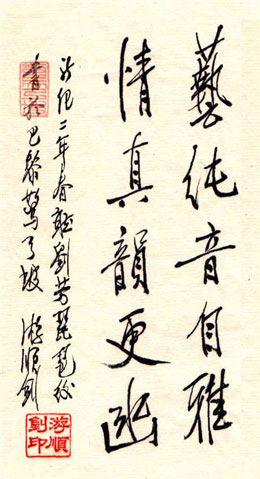 藝純音自雅
情真韻更幽
新纪二年春聽劉芳琵琶後
書於巴黎坡 游順釗
游順
釗印